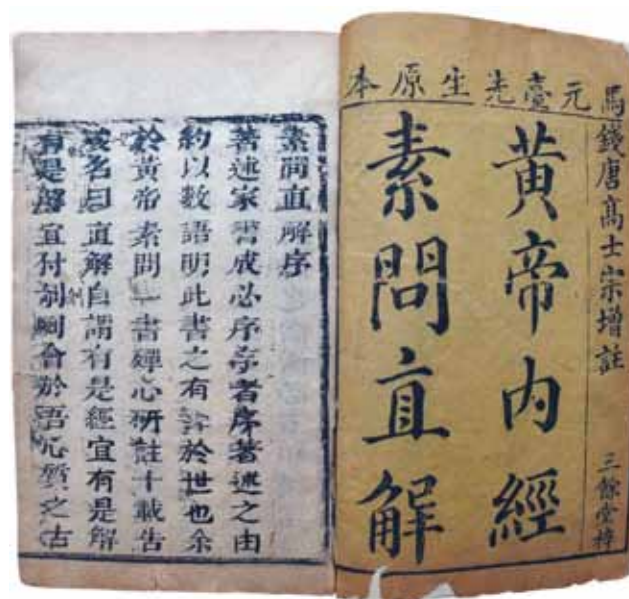 馬元臺先生原本
錢唐高士宗增註
黃帝內經
素問直解
三餘堂梓
素問直解序
著述家書成必序序者序著述之由
約以數語明此書之有於世也余
於黃帝素問一書殫心研註十載告
成名曰直解自謂有是經宜有是解
有是解宜付剞劂會於語之古